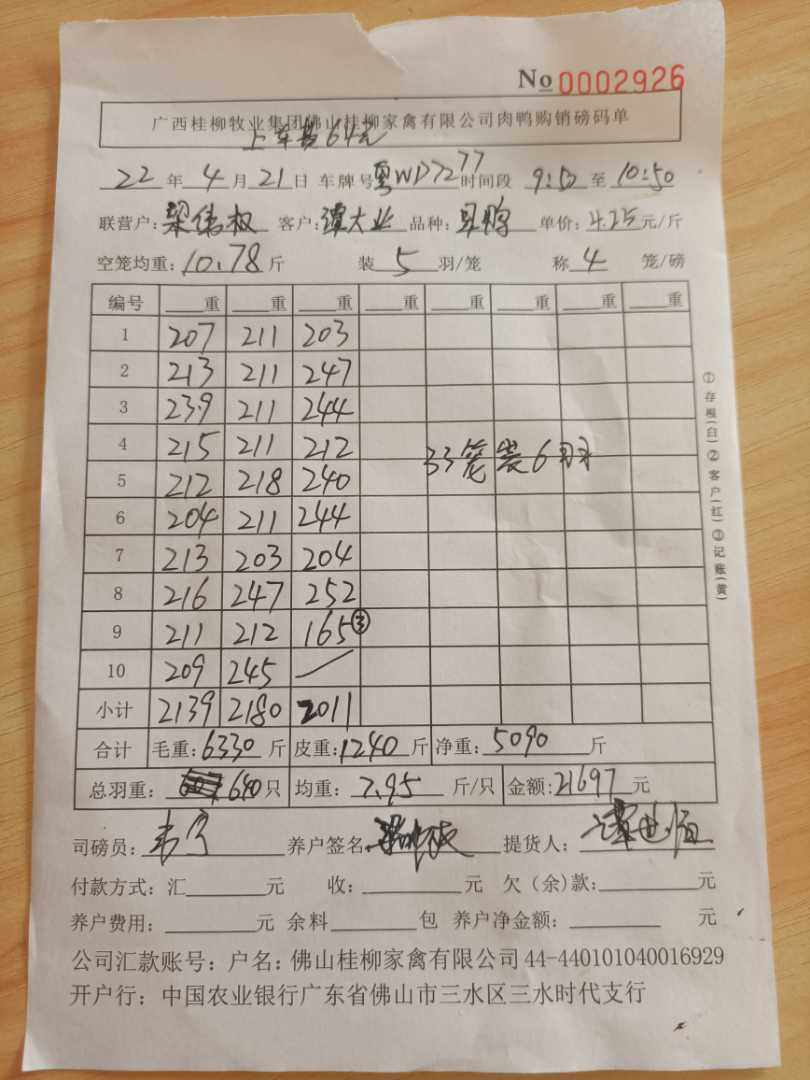 No 0002926
广西桂柳牧业集团佛山桂柳家禽有限公司肉鸭购销磅码单
上车费64元
22年4月21日 车牌号粤WD7277时间段 9:50至10:50
联营户:梁伟权 客户:谭大业 品种: 单价:4.25元/斤
空笼均重:10.78斤 装5羽/笼 称4笼/磅
编号 重 重 重 重 重 重 重 重
1 207 211 203
2 213 211 247
3 239 211 244
4 215 211 212 33笼装6羽
5 212 218 240
6 204 211 244
7 213 203 204
8 216 247 252
9 211 212 165③
10 209 245 /
小计 2139 2180 2011
合计 毛重:6330斤 皮重:1240斤 净重:5090斤
总羽重:640只 均重:7.95斤/只 金额:21697元
司磅员: 养户签名: 提货人:
付款方式:汇 元 收: 元 欠(余)款: 元
养户费用: 元 余料 包 养户净金额: 元
公司汇款账号:户名:佛山桂柳家禽有限公司 44-440101040016929
开户行:中国农业银行广东省佛山市三水区三水时代支行
①存根(白)②客户(红)③记账(黄)